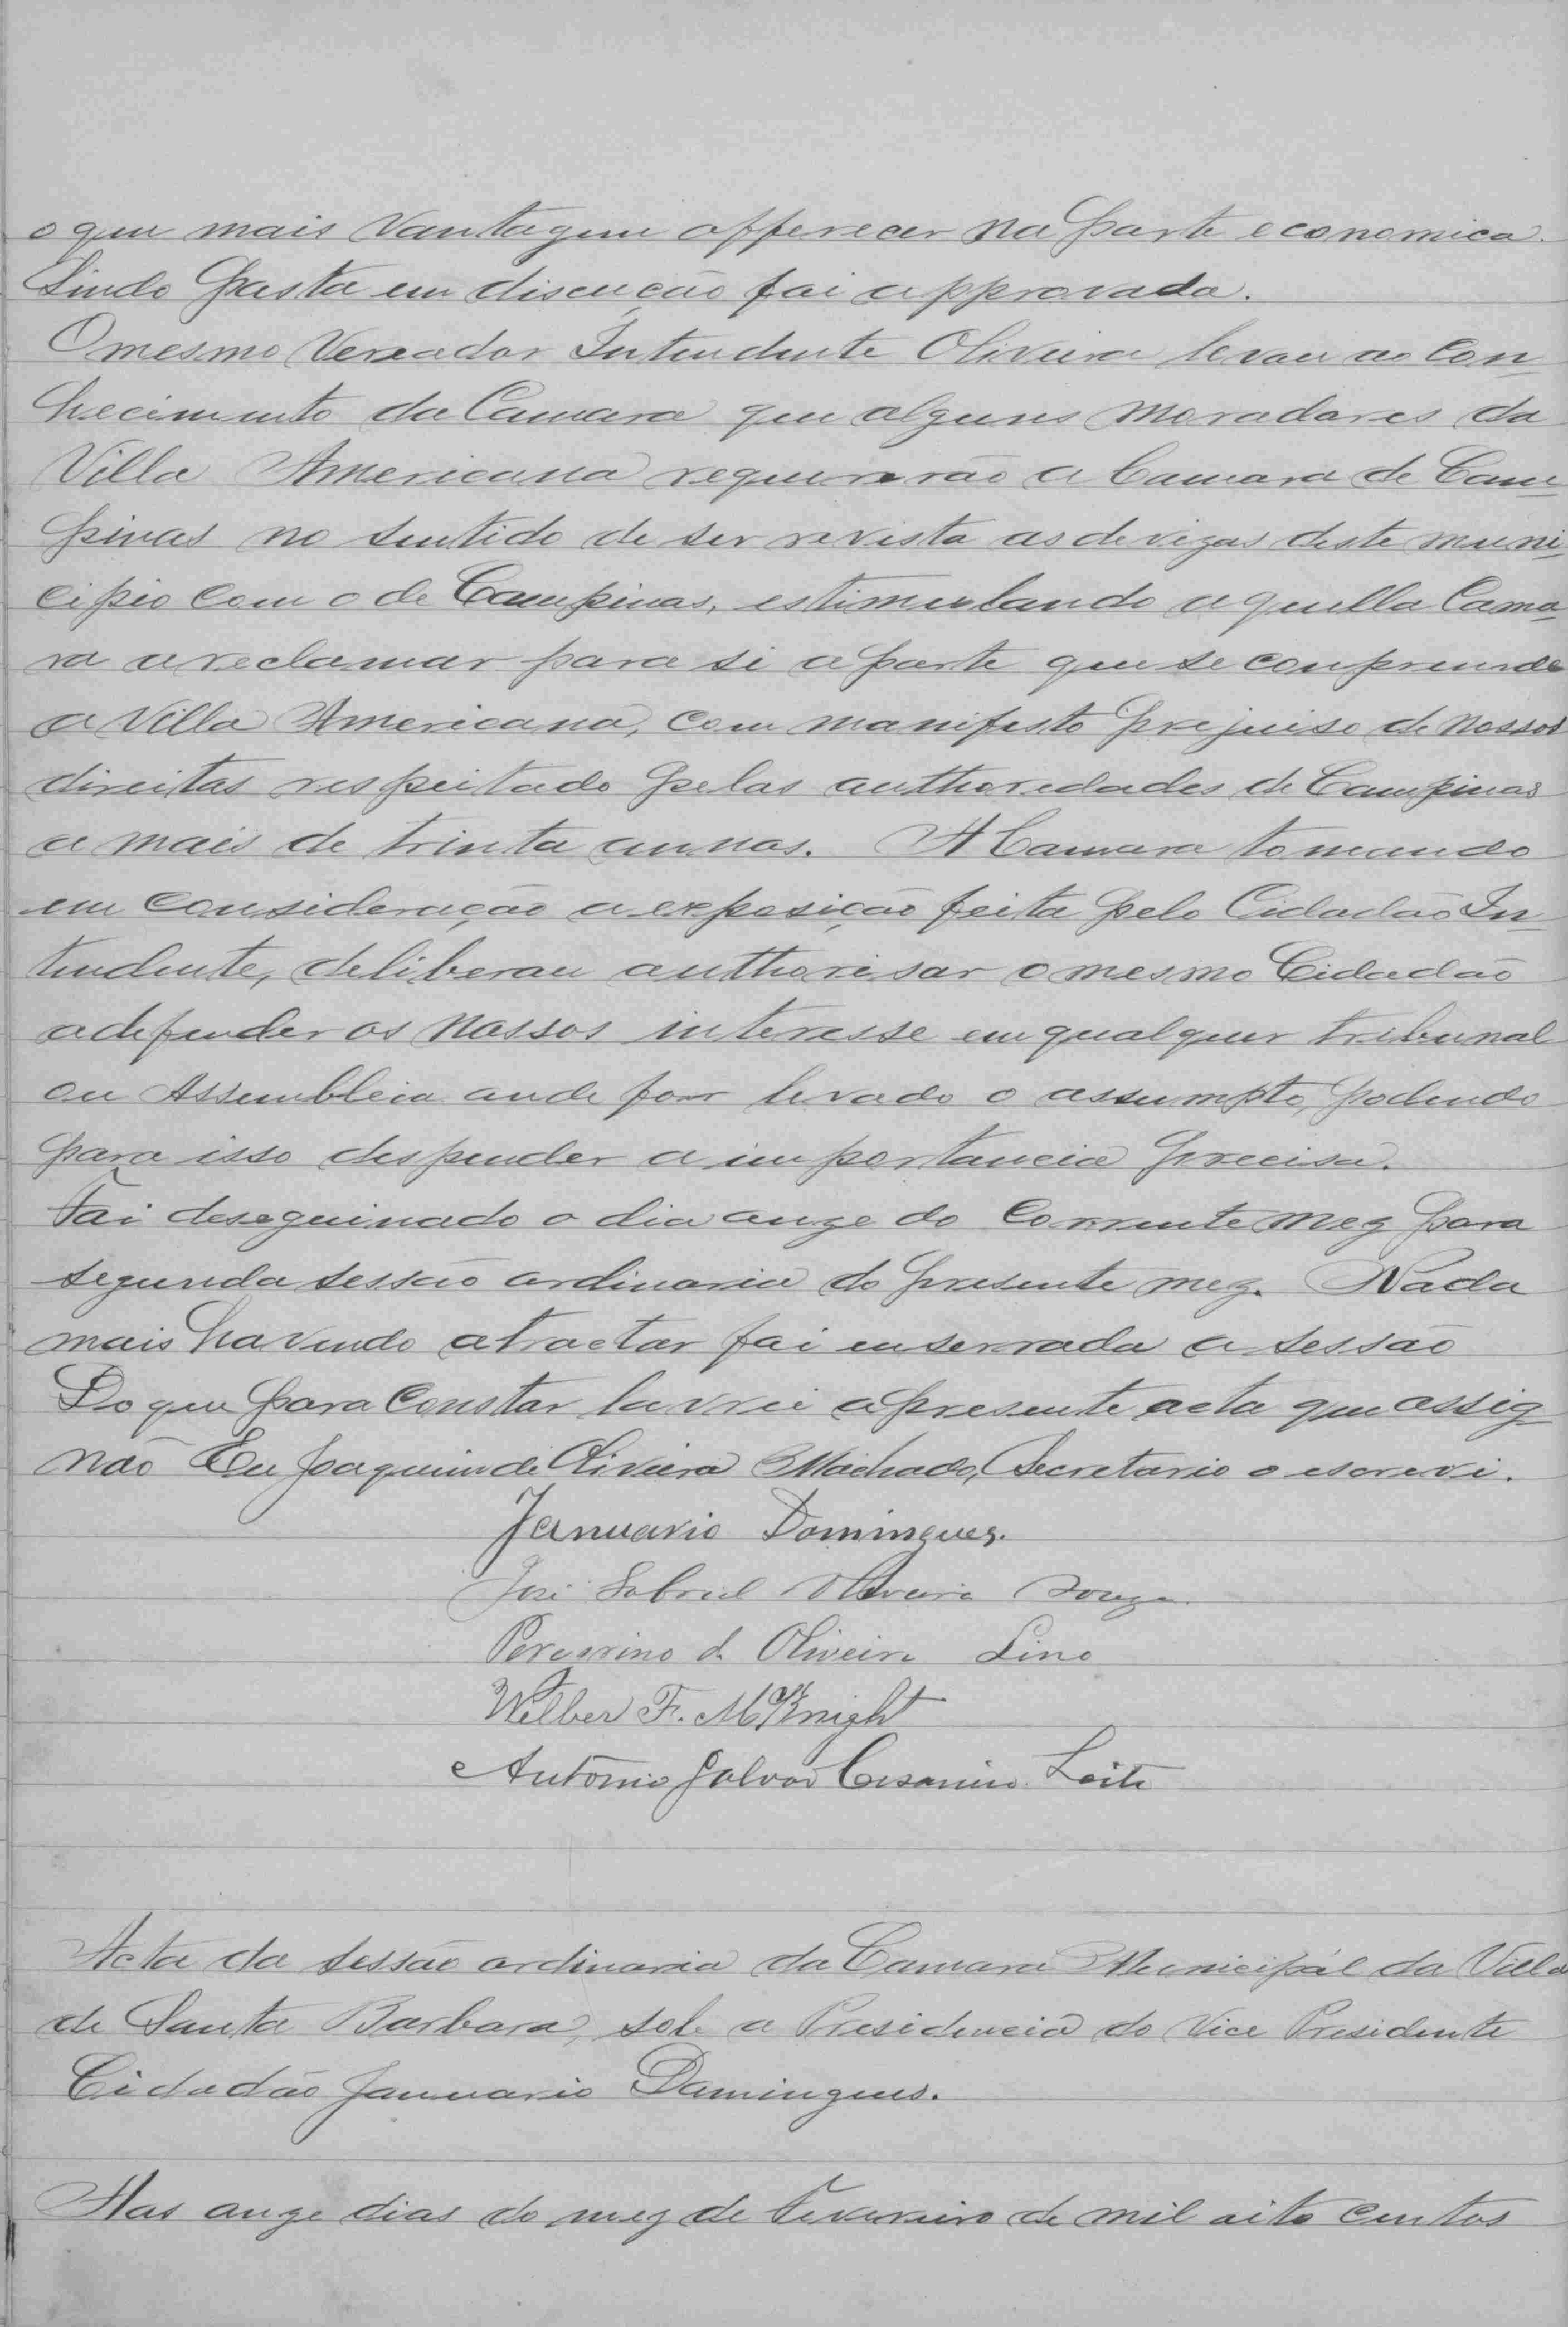 o que mais vantagem offerecer na parte economica.
Sindo posta em discução foi approvada.
O mesmo Vereador Intendente Oliveira levou ao Con
hecimento da Camara que alguns moradores da
Villa Americana requererão a Camara de Cam
pinas no sentido de ser revista as devizas deste muni
cipio com o de Campinas, estimulando aquella Cama
ra a reclamar para si a parte que se conprende
a Villa Americana, com manifesto prejuiso de nossos
direitos respeitado pelas authoredades de Campinas
a mais de trinta annos. A Camara tomando
em consideração a exposição feita pelo Cidadão In
tendente, deliberou authorisar o mesmo Cidadão
a defender os nossos interesse em qualquer tribunal
ou Assembleia onde for levado o assumpto, podendo
para isso despender a importancia precisa.
Foi deseguinado o dia onze do Corrente mez para
segunda sessão ordinaria do presente mez. Nada
mais havendo a tractar foi enserrada a sessão
Do que para Constar lavrei a presente acta que assig
não Eu Joaquim de Oliveira Machado, Secretario o escrevi.
Januario Domingues.
José Gabriel Oliveira Souza
Peregrino d Oliveira Lino
Wilber F. McKnight
Antonio Galvão Cesarino Leite
Acta da sessão ordinaria da Camara Municipál da Villa
de Santa Barbara, sob a Presidencia do Vice Presidente
Cidadão Januario Domingues.
Aos onze dias do mez de Fevereiro de mil oito centos